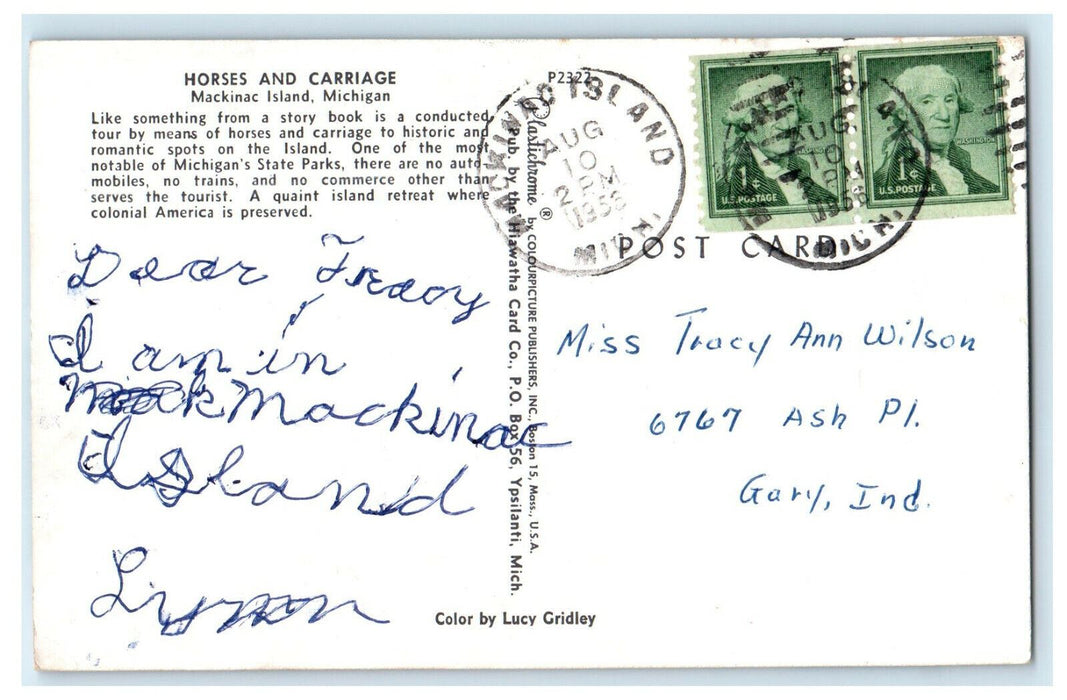 HORSES AND CARRIAGE
Mackinac Island, Michigan
Like something from a story book is a conducted
tour by means of horses and carriage to historic and
romantic spots on the Island. One of the most
notable of Michigan's State Parks, there are no auto-
mobiles, no trains, and no commerce other than
serves the tourist. A quaint island retreat where
colonial America is preserved.
Dear Tracy
I am in
Mackinac
Island
P2322
Plastichrome ® by COLOURPICTURE PUBLISHERS, INC., Boston 15, Mass., U.S.A.
Pub. by the Hiawatha Card Co., P.O. Box 56, Ypsilanti, Mich.
Color by Lucy Gridley
MACKINAC ISLAND
AUG
10
2 PM
MICH.
1¢
U.S. POSTAGE
WASHINGTON
1¢
U.S. POSTAGE
WASHINGTON
AUG
10
PM
MICH.
POST CARD
Miss Tracy Ann Wilson
6767 Ash Pl.
Gary, Ind.